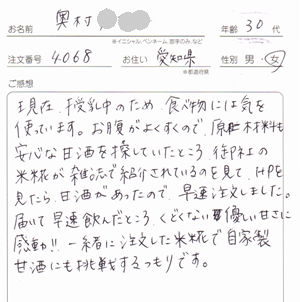 お名前 奥村 年齢 30 代
※イニシャル、ペンネーム、苗字のみ、など
注文番号 4068 お住い 愛知県 性別 男・女
※都道府県
ご感想
現在、授乳中のため、食べ物には気を
使っています。お腹がよくすくので、原材料も
安心な甘酒を探していたところ、御社の
米糀が雑誌で紹介されているのを見て、HPを
見たら、甘酒があったので、早速注文しました。
届いて早速飲んだところ、くどくない優しい甘さに
感動!! 一緒に注文した米糀で自家製
甘酒にも挑戦するつもりです。